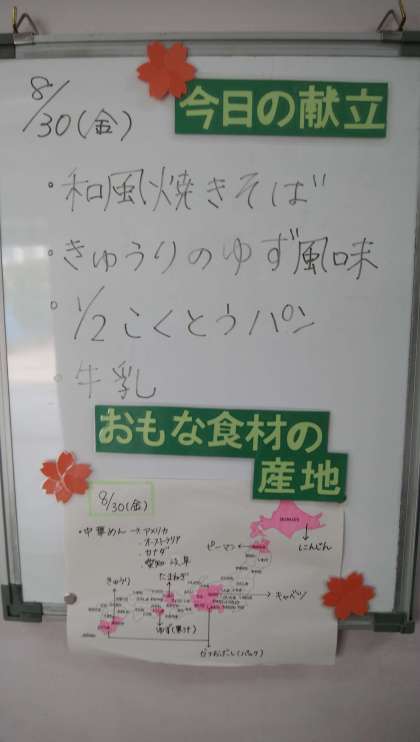 8/30(金)
今日の献立
・和風焼きそば
・きゅうりのゆず風味
・1/2こくとうパン
・牛乳
おもな食材の
産地
8/30(金)
・中華めん→アメリカ
・オーストラリア
・カナダ
・愛知 岐阜
ピーマン
にんじん
きゅうり
たまねぎ
キャベツ
ゆず(果汁)